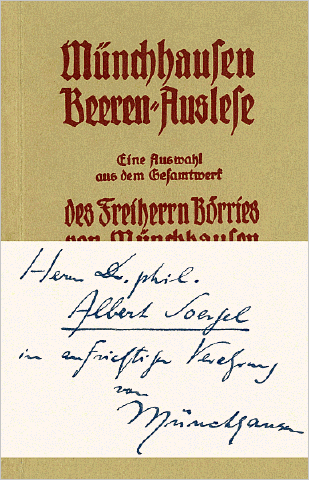 Münchhausen
Beeren-Auslese
Eine Auswahl
aus dem Gesamtwerk
des Freiherrn Börries
von Münchhausen
Herrn Dr. phil.
Albert Soergel
in aufrichtiger Verehrung
von
Münchhausen